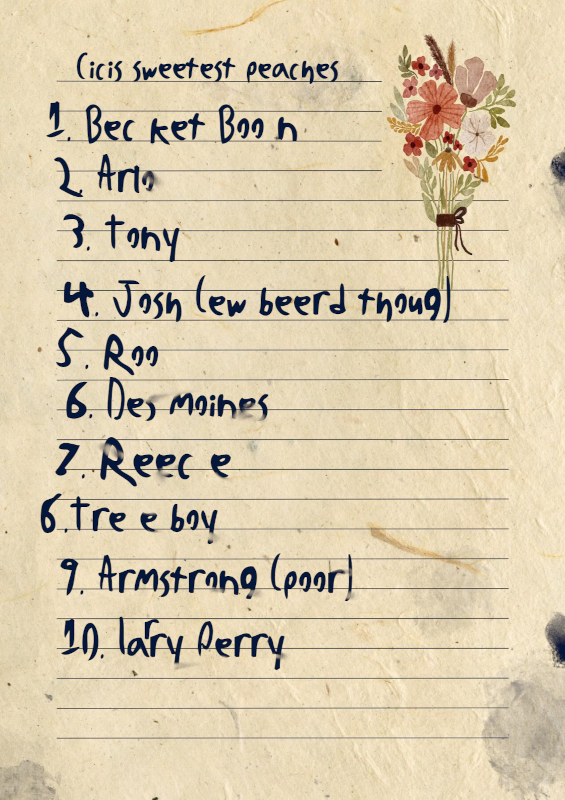 Cicis sweetest peaches
1. Becket Boon
2. Arlo
3. Tony
4. Josh (ew beerd thoug)
5. Roo
6. Des moines
7. Reece
6. Tree boy
9. Armstrong (poor)
10. larry Perry